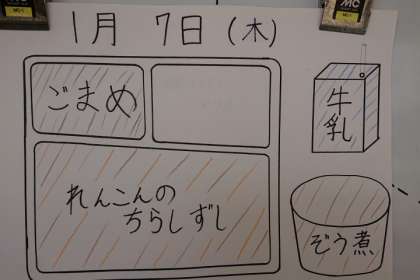 1月 7日 (木)
ごまめ
牛乳
れんこんの
ちらしずし
ぞう煮